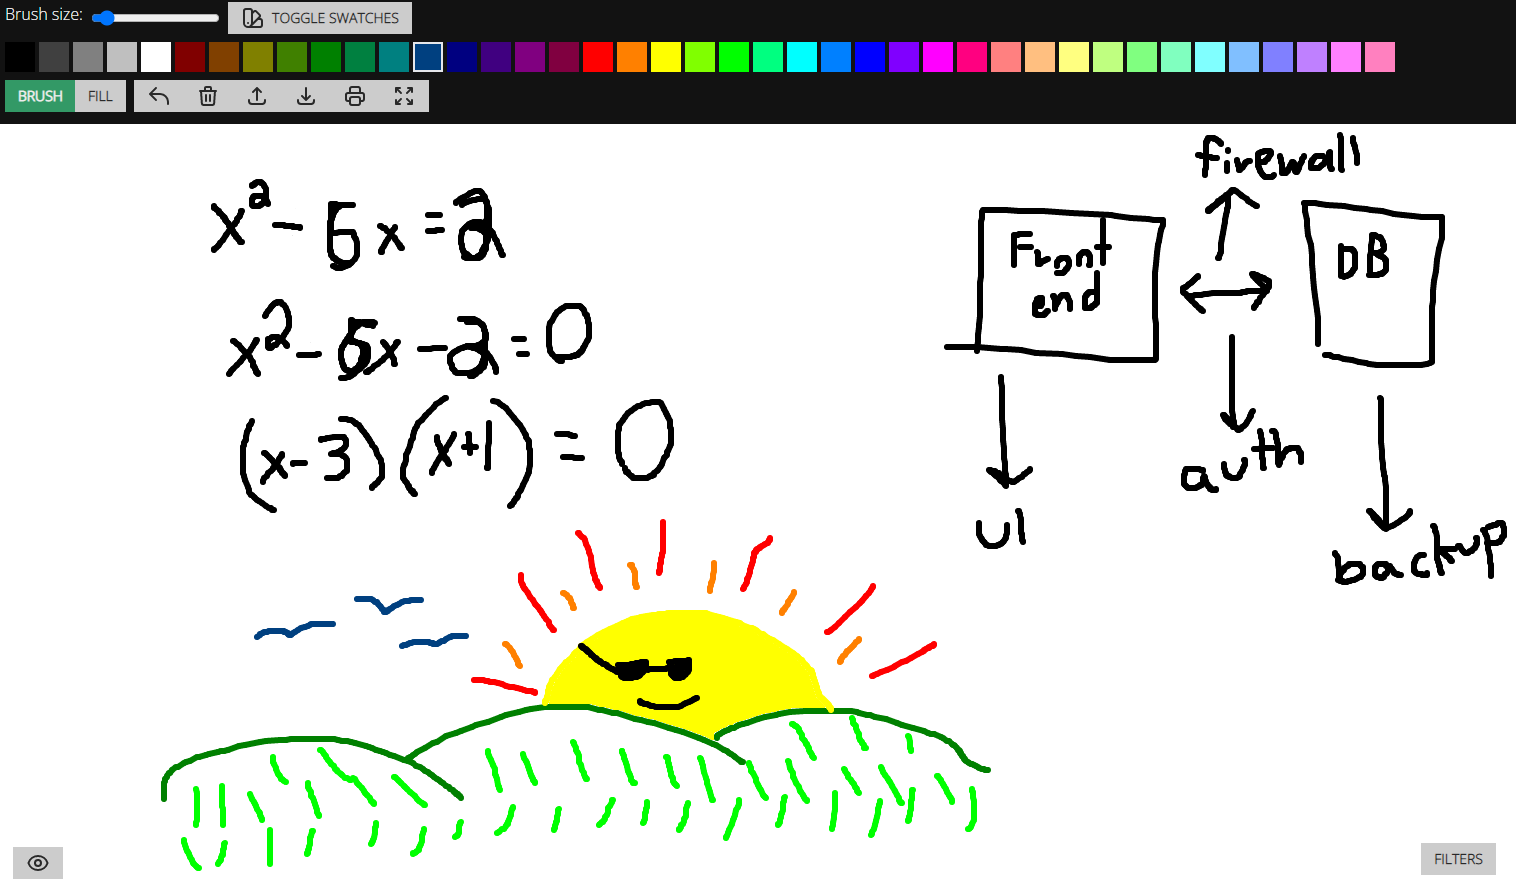 Brush size:
TOGGLE SWATCHES
BRUSH
FILL
x² - 5x = 2
x² - 5x - 2 = 0
(x-3)(x+1) = 0
firewall
Front
end
DB
auth
UI
backup
FILTERS